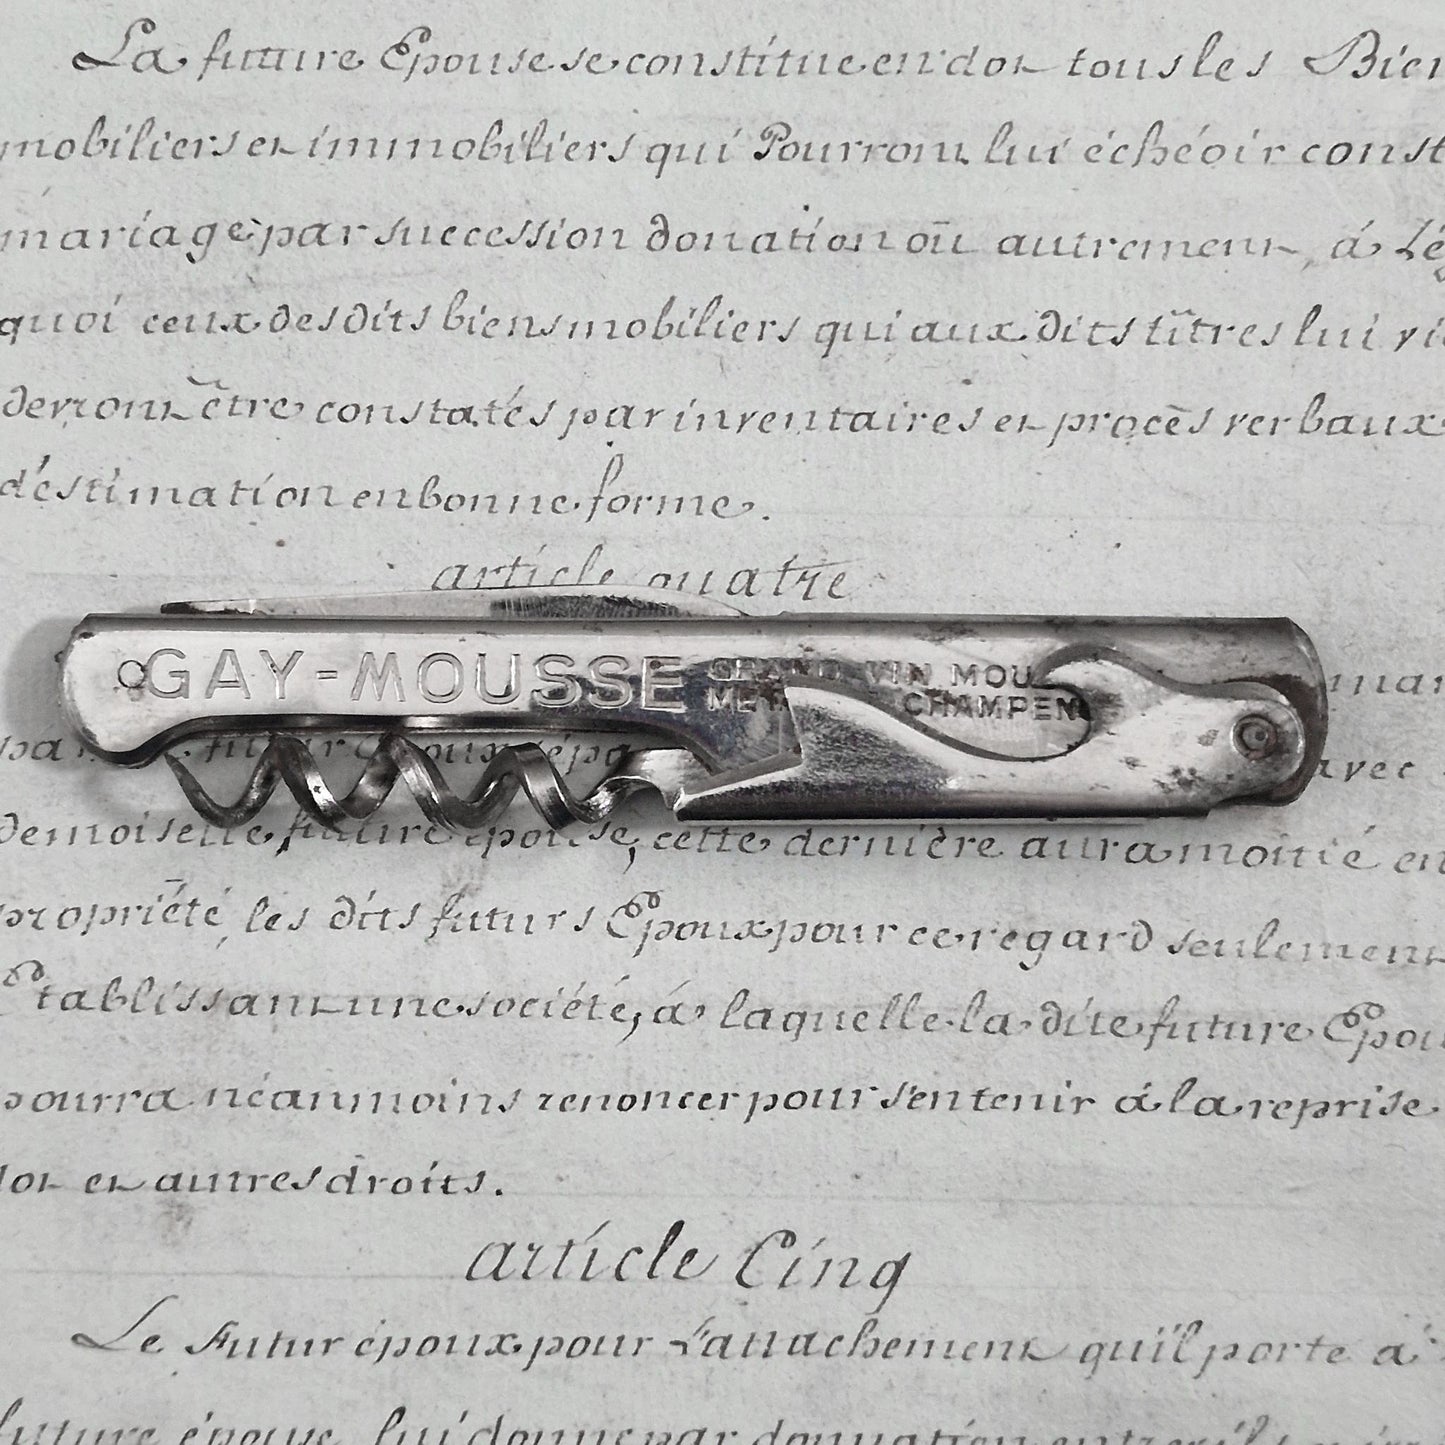 La future Epouse se constitue en dot tous les Bien
mobiliers et immobiliers qui Pourront lui échéoir const
mariage par succession donation oū autrement, á Lég
quoi ceux des dits biens mobiliers qui aux dits titres lui vi
devront être constatés par inventaires et procès verbaux
d'estimation en bonne forme.
article quatre
GAY-MOUSSE GRAND VIN MOU
CHAMPEN
mar
futur Epoux
avec
demoiselle, future épouse, cette dernière aura moitié en
propriété, les dits futurs Epoux pour ce regard seulement
Etablissant une société, á laquelle la dite future Epou
pourra néanmoins renoncer pour s'en tenir á la reprise
dot et autres droits.
article Cinq
Le Futur époux pour L'attachement qu'il porte à
future épouse, lui donne par donnation entre